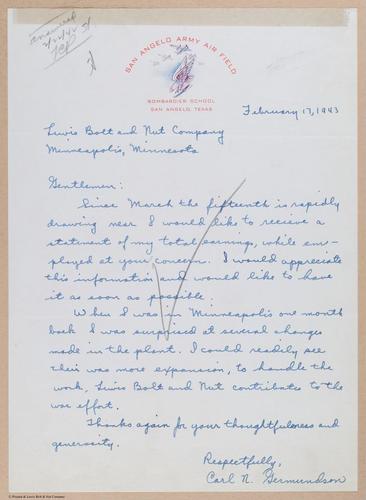 answered
SAN ANGELO ARMY AIR FIELD
BOMBARDIER SCHOOL
SAN ANGELO, TEXAS
February 17, 1943
Lewis Bolt and Nut Company
Minneapolis, Minnesota
Gentlemen:
Since March the fifteenth is rapidly
drawing near I would like to recieve a
statement of my total earnings, while em-
ployed at your concern. I would appreciate
this information and would like to have
it as soon as possible.
When I was in Minneapolis one month
back I was surprised at several changes
made in the plant. I could readily see
their was more expansion, to handle the
work, Lewis Bolt and Nut contributes to the
war effort.
Thanks again for your thoughtfulness and
generosity.
Respectfully,
Carl N. Germundson